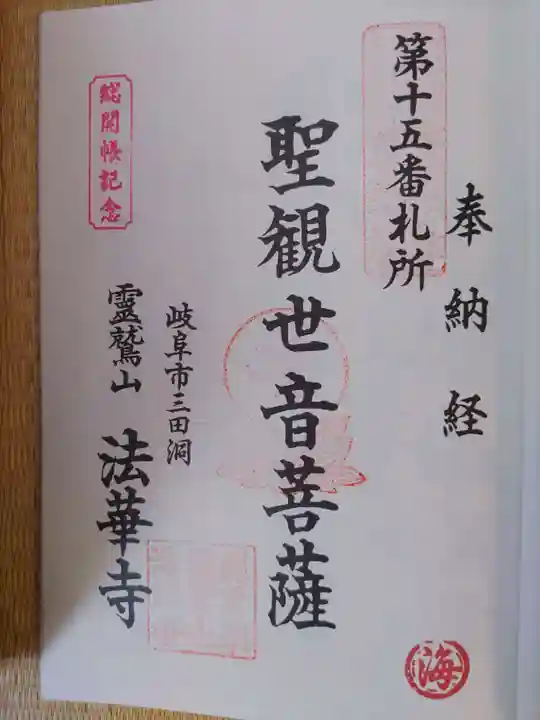 奉納経
第十五番札所
聖観世音菩薩
岐阜市三田洞
霊鷲山 法華寺
総開帳記念
海